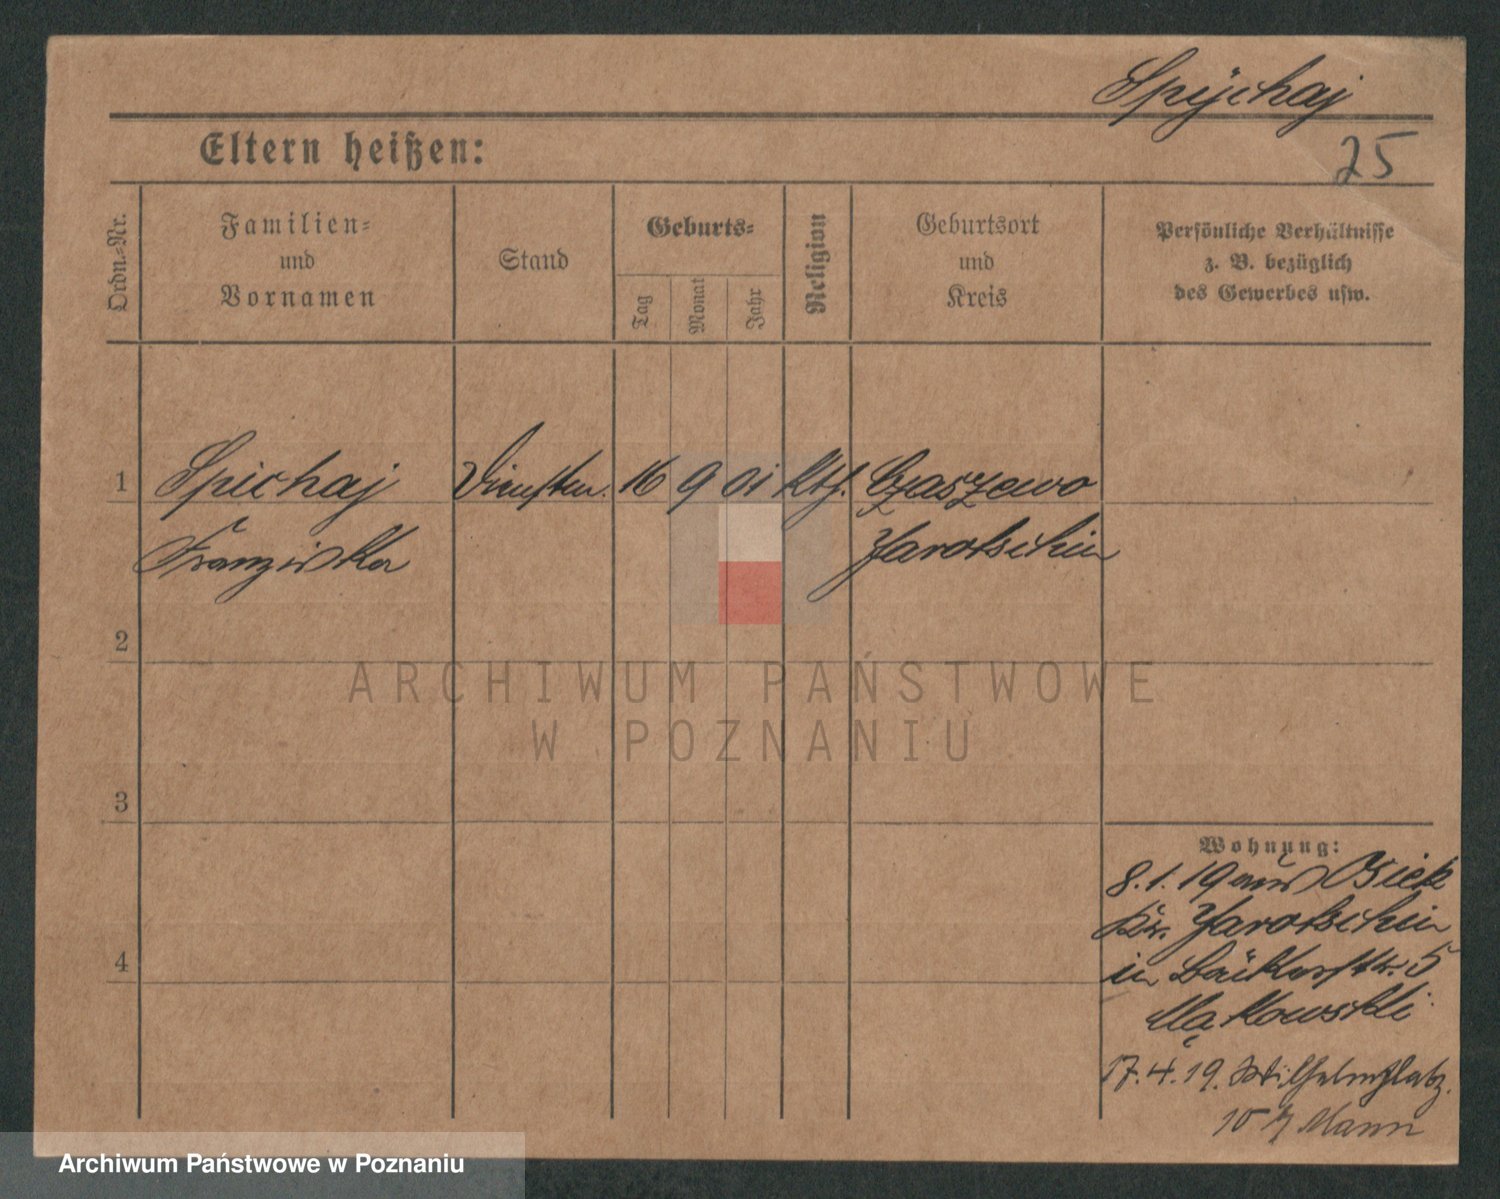 Spÿchaj
25
Eltern heißen:
Ordn.-Nr.
Familien-
und
Vornamen
Stand
Geburts-
Tag
Monat
Jahr
Religion
Geburtsort
und
Kreis
Persönliche Verhältnisse
z. B. bezüglich
des Gewerbes usw.
1 Spichaj Dienstm. 16 9 01 Kth. Czaszewo
Franziska Jarotschin
2
ARCHIWUM PAŃSTWOWE
W POZNANIU
3
Wohnung:
8.1.19 aus Osiek
Kr. Jarotschin
4
in Bäckerstr. 5
Mąkowski
17.4.19. Wilhelmplatz.
10 Mann
Archiwum Państwowe w Poznaniu